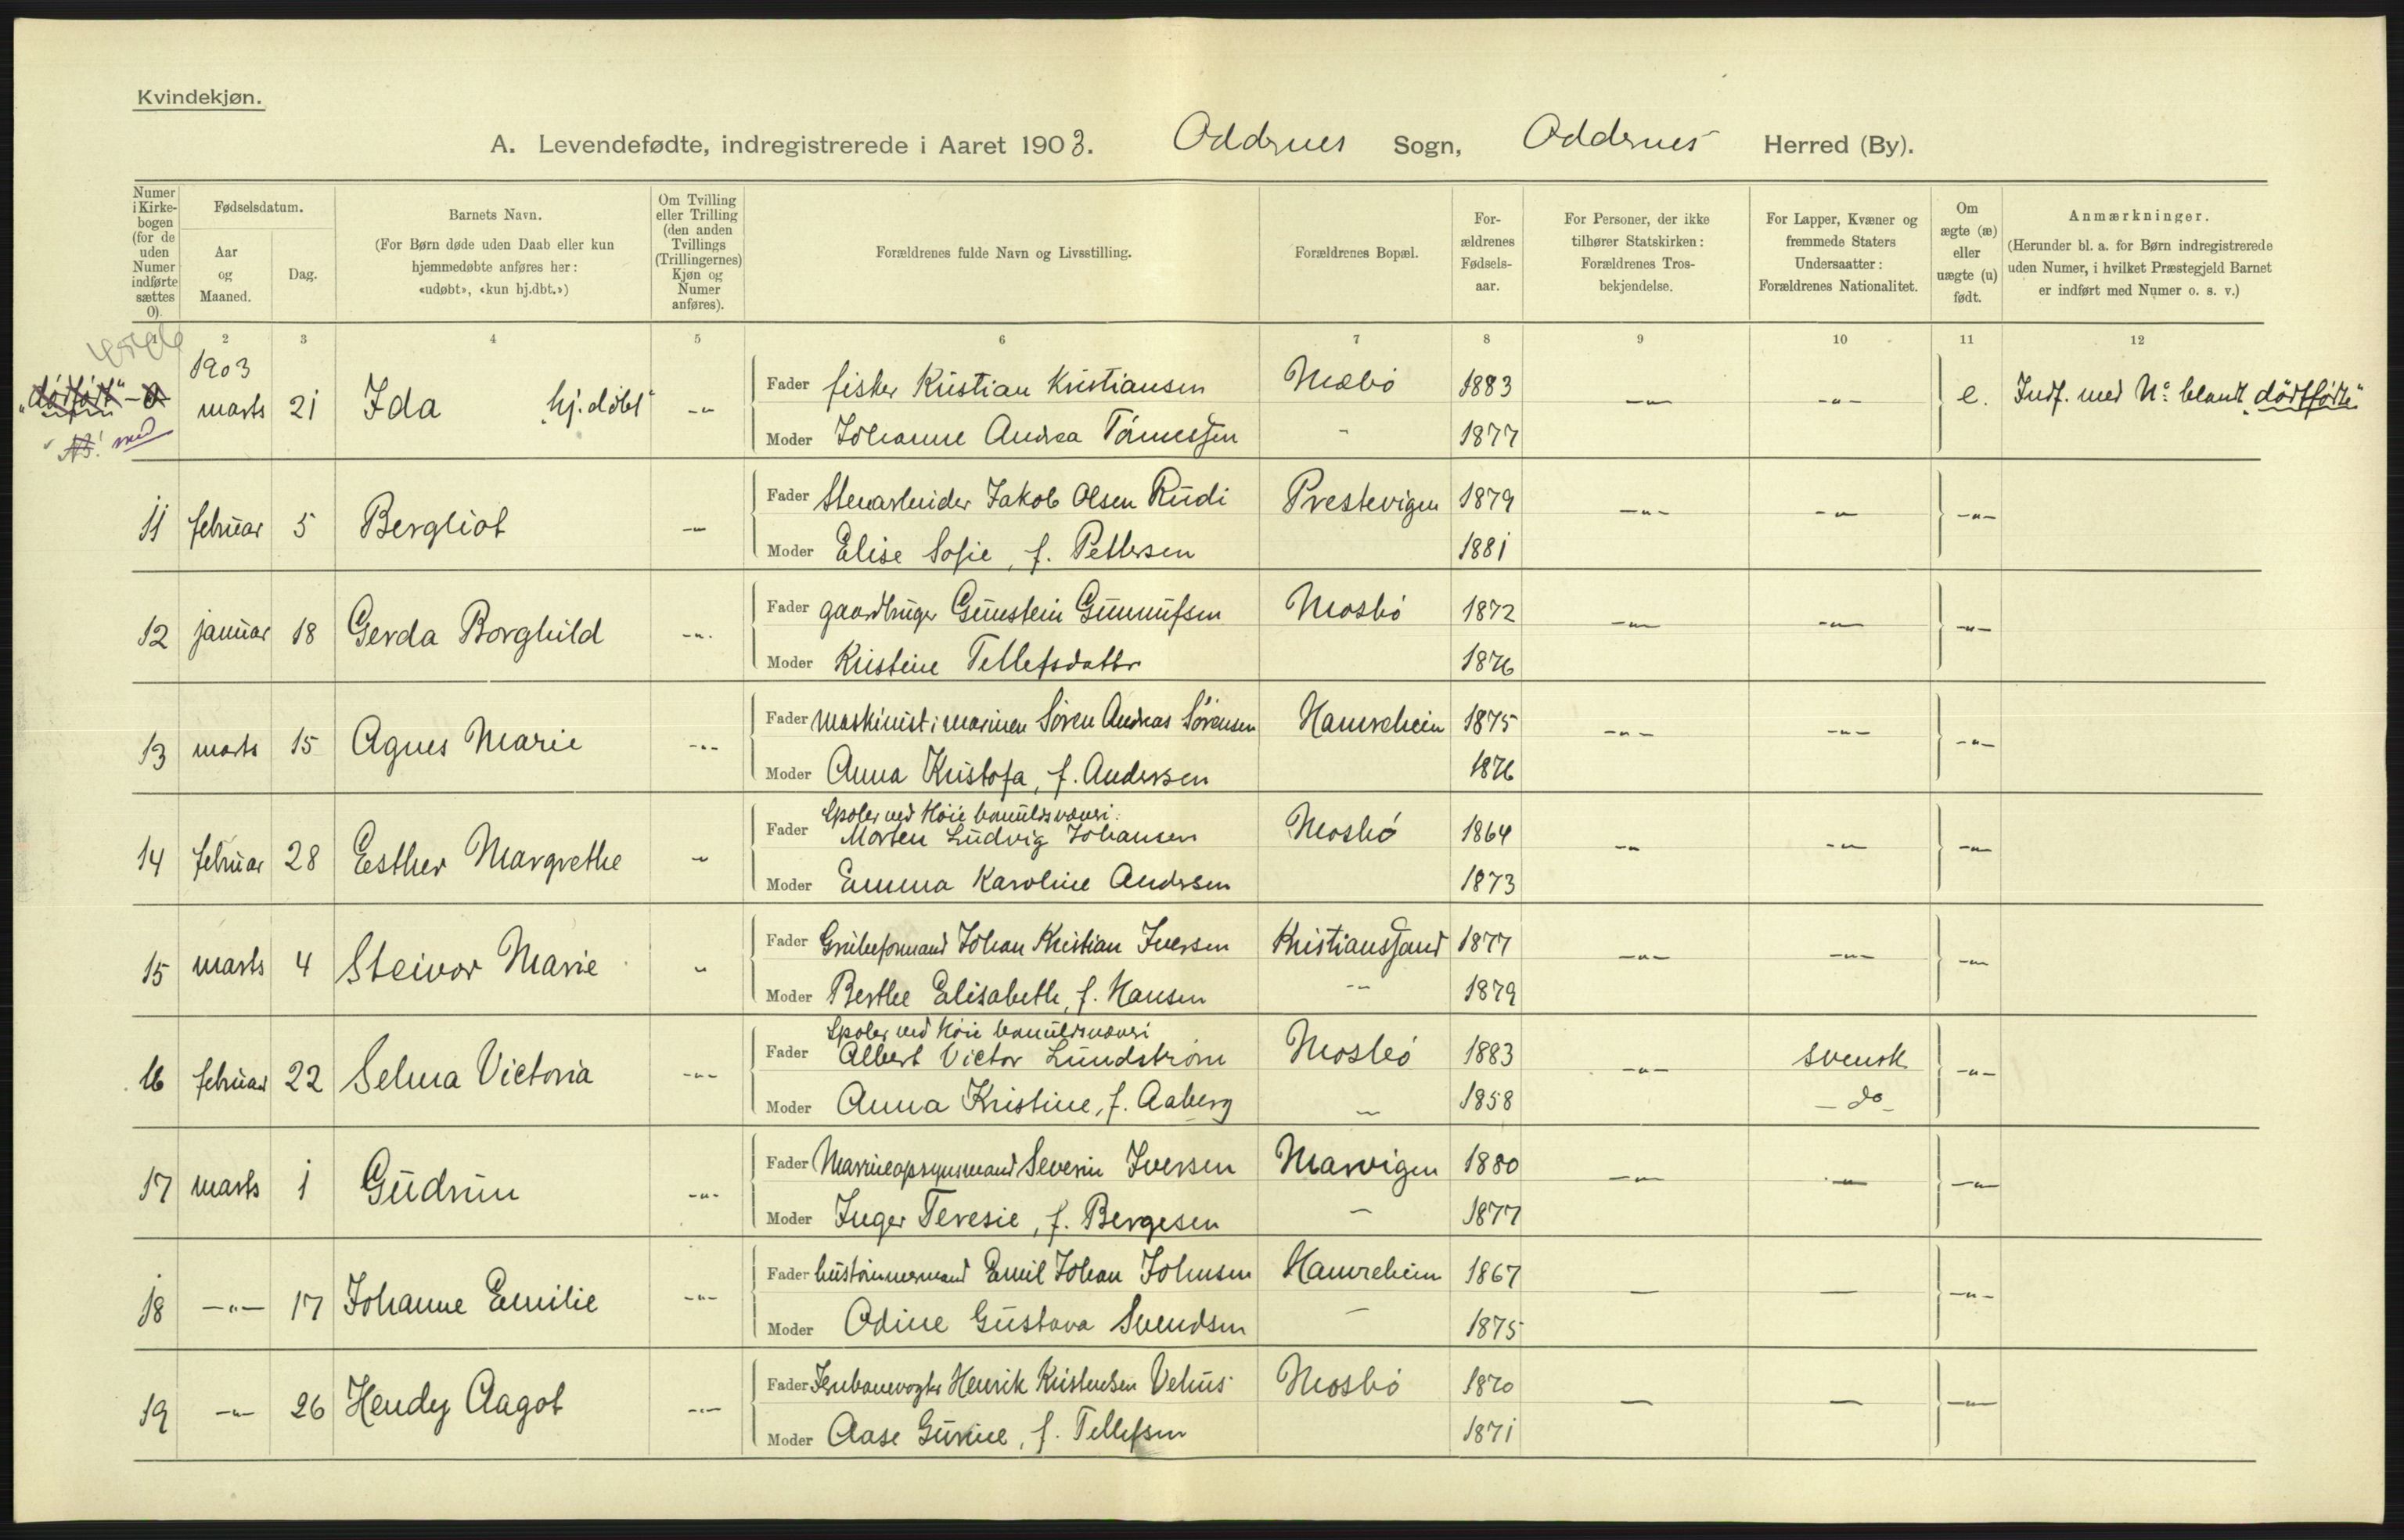 Kvindekjøn.
A. Levendefødte, indregistrerede i Aaret 1903. Oddernes Sogn, Oddernes Herred (By).
Numer i Kirkebogen (for de uden Numer indførte sættes 0).
Fødselsdatum.
Aar og Maaned.
Dag.
Barnets Navn.
(For Børn døde uden Daab eller kun hjemmedøbte anføres her: «udøbt», «kun hj.dbt.»)
Om Tvilling eller Trilling (den anden Tvillings (Trillingernes) Kjøn og Numer anføres).
Forældrenes fulde Navn og Livsstilling.
Forældrenes Bopæl.
Forældrenes Fødselsaar.
For Personer, der ikke tilhører Statskirken: Forældrenes Trosbekjendelse.
For Lapper, Kvæner og fremmede Staters Undersaatter: Forældrenes Nationalitet.
Om ægte (æ) eller uægte (u) født.
Anmærkninger.
(Herunder bl. a. for Børn indregistrerede uden Numer, i hvilket Præstegjeld Barnet er indført med Numer o. s. v.)
2 3 4 5 6 7 8 9 10 11 12
1903
"dødfødt" - 0 marts 21 Ida "hj. døbt" -"- Fader fisker Kristian Kristiansen Mæbø 1883 -"- -"- e. Indf. med No: blandt "dödtfödte"
med
Moder Johanne Andrea Tønnessen - 1877
11 februar 5 Bergliot -"- Fader Stenarbeider Jakob Olsen Rudi Prestevigen 1879 -"- -"- -"-
Moder Elise Sofie, f. Pettersen 1881
12 januar 18 Gerda Borghild -"- Fader gaardbruger Gunstein Gunnufsen Mosbö 1872 -"- -"- -"-
Moder Kristine Tellefsdatter 1876
13 marts 15 Agnes Marie -"- Fader maskinist i marinen Sören Andreas Sörensen Hamreheien 1875 -"- -"- -"-
Moder Anna Kristofa, f. Andersen 1876
14 februar 28 Esther Margrethe " Fader Spoler ved Höie bomuldsvæveri. Morten Ludvig Johansen Mosbö 1864 -"- -"- -"-
Moder Emma Karoline Andersen 1873
15 marts 4 Steivor Marie " Fader Grubeformand Johan Kristian Iversen Kristianssand 1877 -"- -"- -"-
Moder Berthe Elisabeth, f. Hansen -"- 1879
16 februar 22 Selma Victoria -"- Fader Spoler ved Höie bomuldsvæveri Albert Victor Lundström Mosbö 1883 -"- svensk -"-
Moder Anna Kristine, f. Aaberg - 1858 - do -
17 marts 1 Gudrun -"- Fader Marineopsynsmand Severin Iversen Marvigen 1880 -"- -"- -"-
Moder Inger Teresie, f. Bergesen - 1877
18 -"- 17 Johanne Emilie -"- Fader hustömmermand Emil Johan Johnsen Hamreheien 1867 - - -"-
Moder Odine Gustava Svendsen - 1875
19 -"- 26 Hendy Aagot -"- Fader Jernbanevogter Henrik Kristensen Vehus Mosbö 1870 - - -"-
Moder Aase Gurine, f. Tellefsen 1871